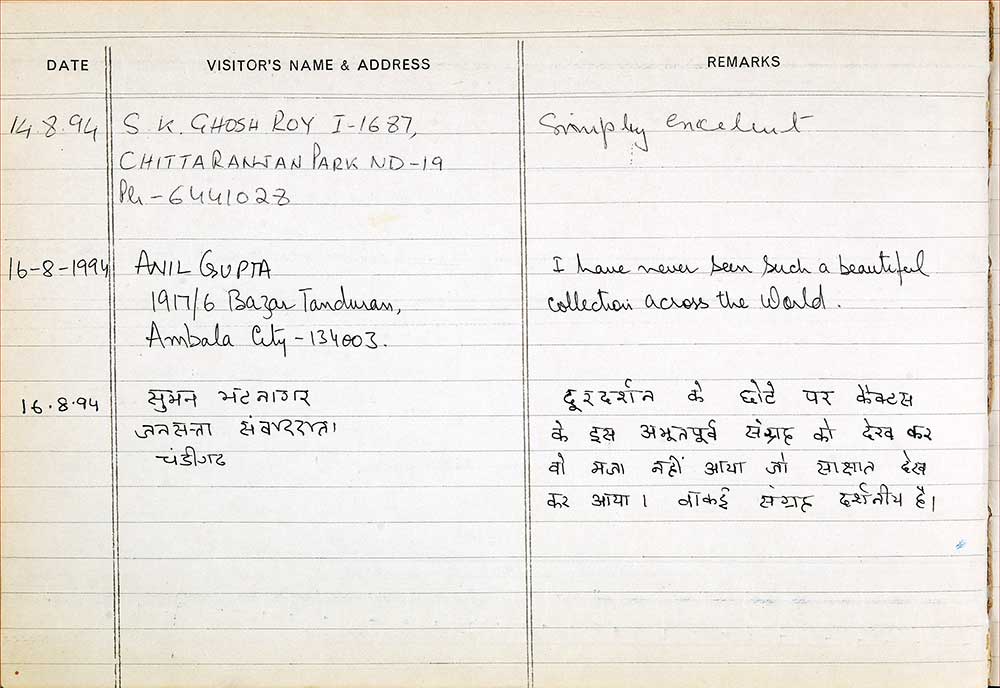 DATE VISITOR'S NAME & ADDRESS REMARKS
14.8.94 S. K. GHOSH ROY I-1687, Simply excelent
CHITTARANJAN PARK ND-19
Ph-6441028
16-8-1994 ANIL GUPTA I have never seen such a beautiful
1917/6 Bazar Tanduran, collection across the World.
Ambala City-134003.
16.8.94 सुमन भटनागर दूरदर्शन के छोटे पर कैक्टस
जनसत्ता संवाददाता के इस अभूतपूर्व संग्रह को देख कर
चंडीगढ वो मजा नहीं आया जो साक्षात देख
कर आया। वाकई संग्रह दर्शनीय है।